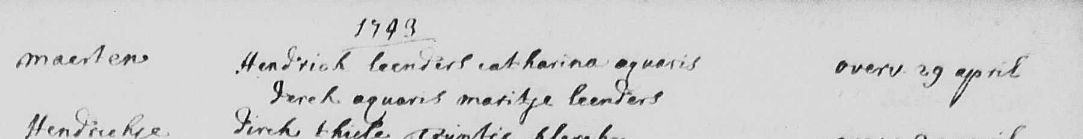 1743
maerten Hendrich leenders catharina aquaris overv. 29 april
derch aquaris maritje leenders
Hendrichje dirch thiele